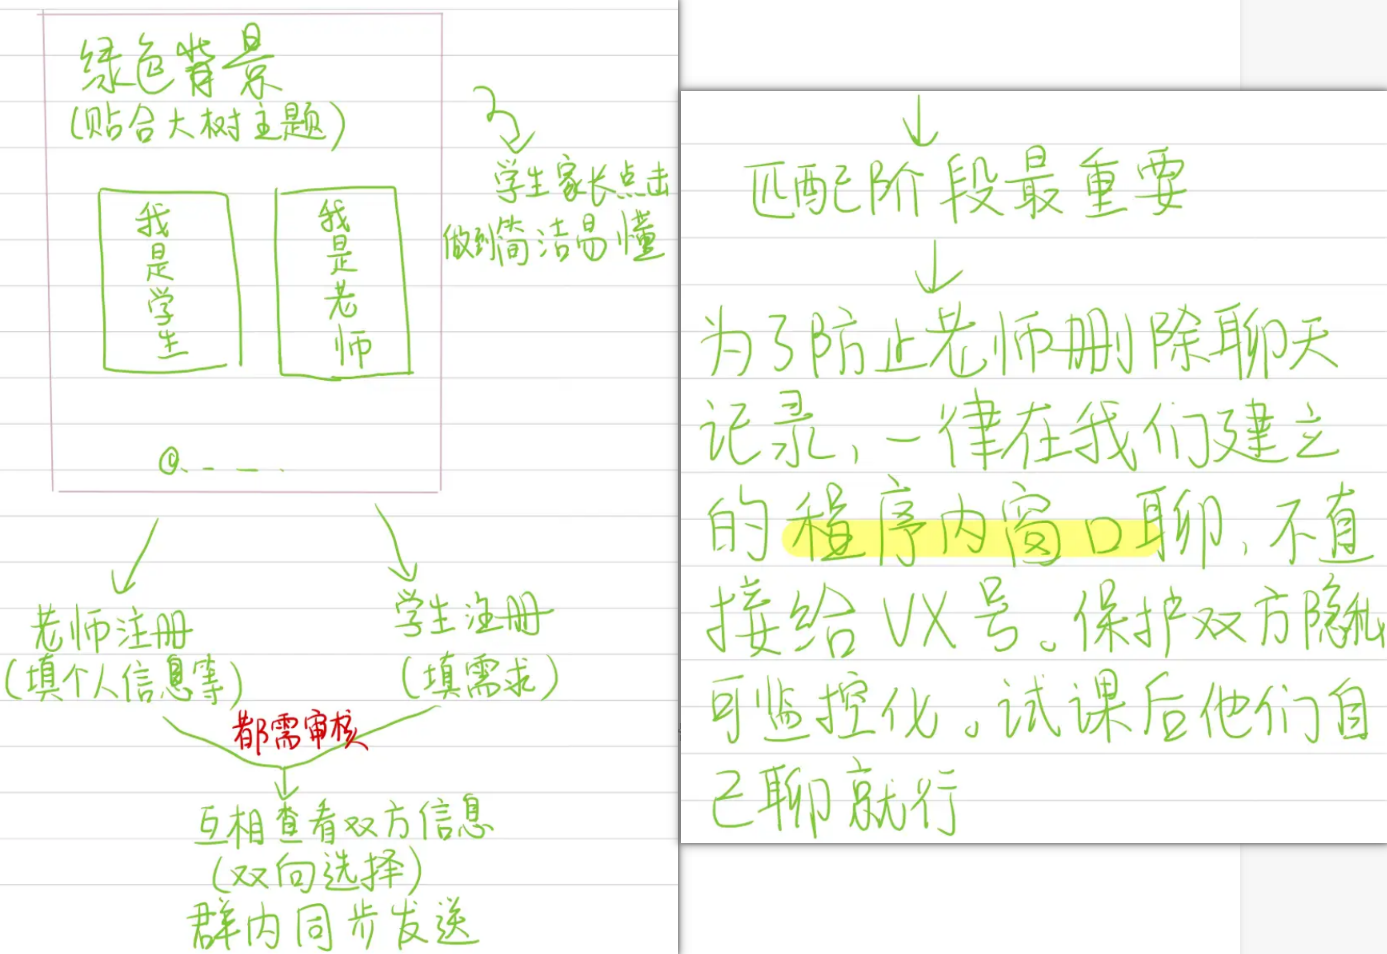 绿色背景
(贴合大树主题)
学生家长点击
做到简洁易懂
我是学生
我是老师
老师注册
(填个人信息等)
学生注册
(填需求)
都需审核
互相查看双方信息
(双向选择)
群内同步发送
匹配阶段最重要
为了防止老师删除聊天
记录,一律在我们建立
的程序内窗口聊,不直
接给VX号。保护双方隐私
可监控化。试课后他们自
己聊就行